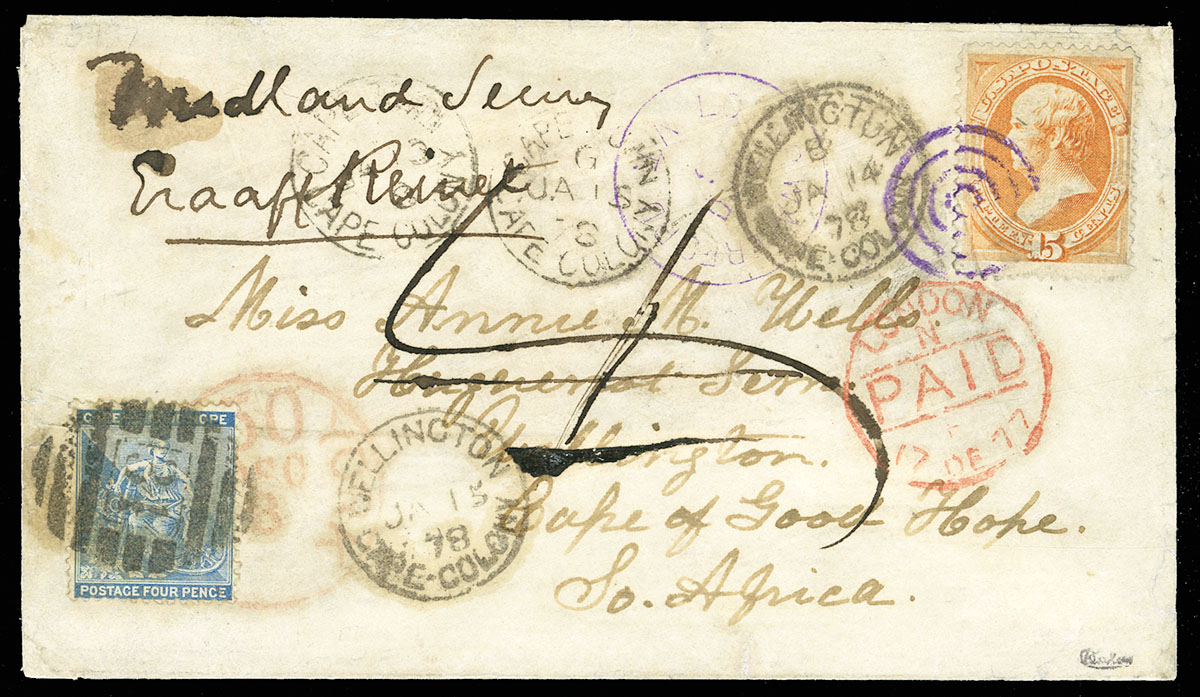 Midland Semy
Graaff Reinet
U.S. POSTAGE
15
CENTS
CAPE COLONY
CAPE
JA 15
78
CAPE COLONY
REC'D
WELLINGTON
B
JA 14
78
CAPE-COLONY
Miss Annie M. Wells
Huguenot Sem.
Wellington.
Cape of Good Hope.
So. Africa.
LONDON
N
PAID
17 DE 77
CAPE HOPE
POSTAGE FOUR PENCE
WELLINGTON
JA 15
78
CAPE-COLONY